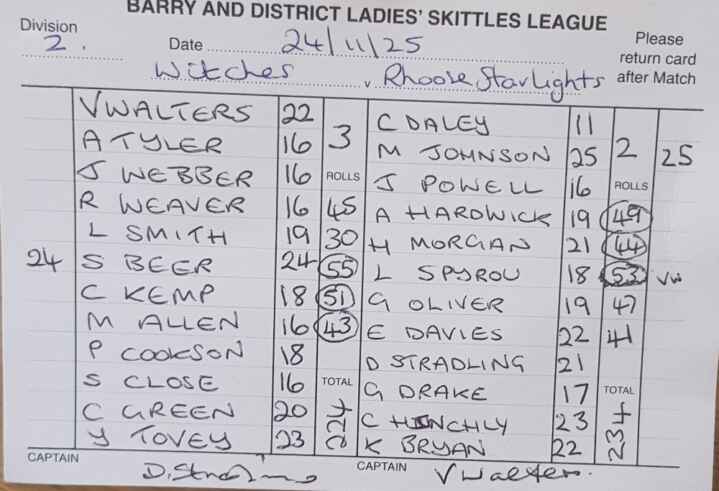 BARRY AND DISTRICT LADIES' SKITTLES LEAGUE
Division 2. Date 24/11/25 Please return card after Match
Witches v Rhoose Starlights
V WALTERS 22 C DALEY 11
A TYLER 16 3 M JOHNSON 25 2 25
J WEBBER 16 ROLLS J POWELL 16 ROLLS
R WEAVER 16 45 A HARDWICK 19 49
L SMITH 19 30 H MORGAN 21 44
24 S BEER 24 55 L SPYROU 18 53 VW
C KEMP 18 51 G OLIVER 19 47
M ALLEN 16 43 E DAVIES 22 41
P COOKSON 18 D STRADLING 21
S CLOSE 16 TOTAL G DRAKE 17 TOTAL
C GREEN 20 224 C HINCHLY 23 234
Y TOVEY 23 K BRYAN 22
CAPTAIN D. Stradling CAPTAIN V Walters.